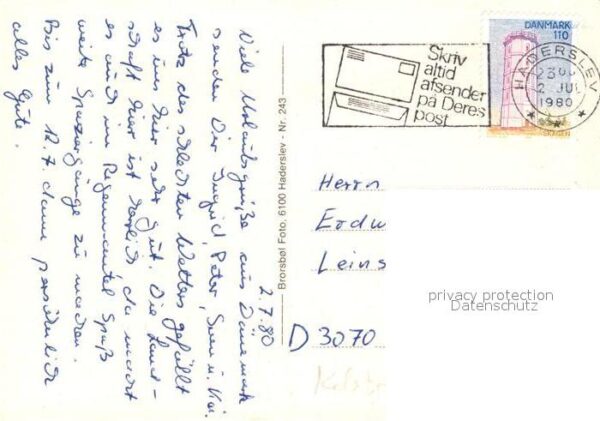 2.7.80
Viele Urlaubsgrüße aus Dänemark
senden Dir Ingrid, Peter, Sven u. Kai.
Trotz des schlechten Wetters gefällt
es uns hier sehr gut. Die Land-
schaft hier ist herrlich da macht
es auch im Regenmantel Spaß
weite Spaziergänge zu machen.
Bis zum 12.7. dann persönlich
alles Gute.
Brorsbøl Foto. 6100 Haderslev - Nr. 243
Skriv
altid
afsender
på Deres
post
DANMARK
110
HADERSLEV
2 JUL
1980
SKAGEN
Herrn
Erdw
Leins
D 3070
privacy protection
Datenschutz